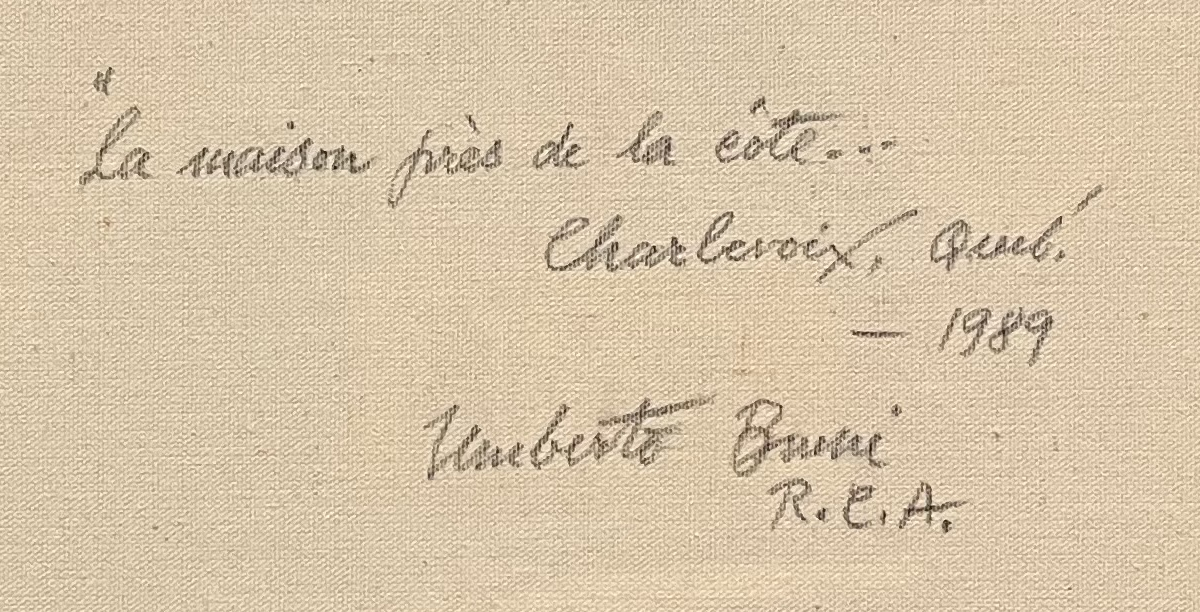 "La maison près de la côte...
Charlevoix, Qué.
- 1989
Umberto Bruni
R.C.A.